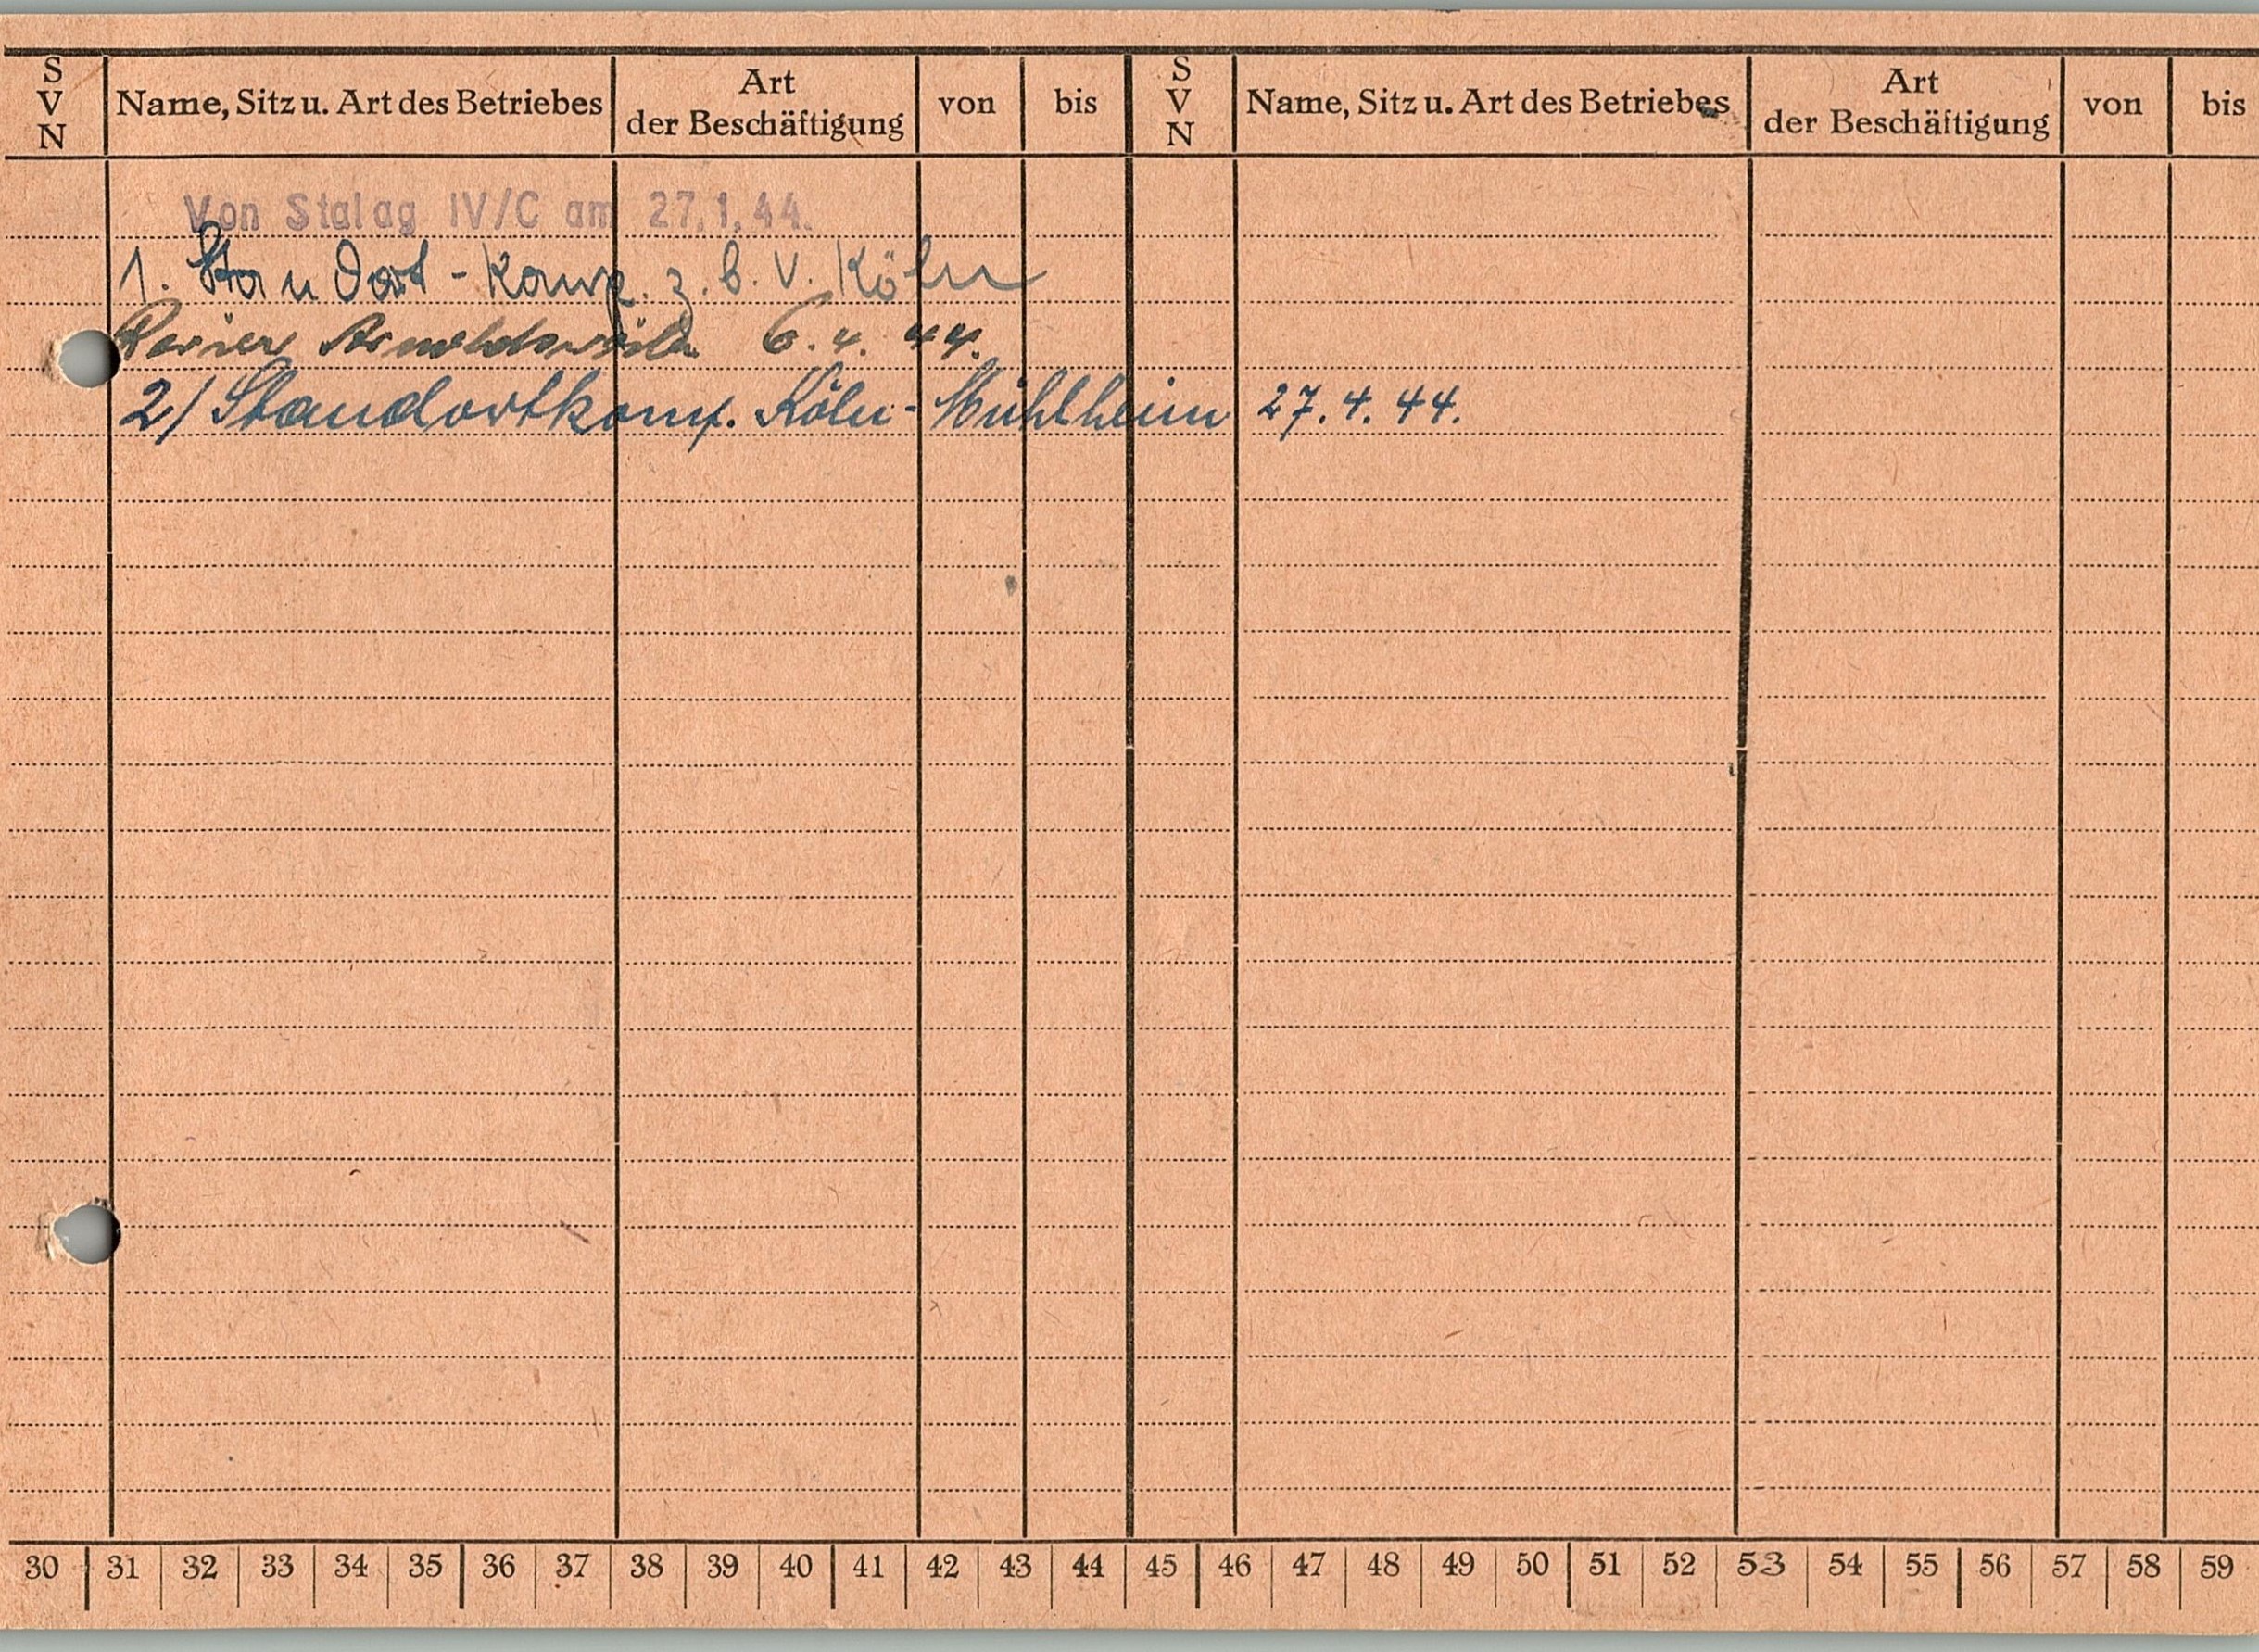 S V N Name, Sitz u. Art des Betriebes Art der Beschäftigung von bis S V N Name, Sitz u. Art des Betriebes Art der Beschäftigung von bis
Von Stalag IV/C am 27.1.44.
1. Standort-Komp. z. b. V. Köln
Revier Arnoldsweiler 6.4.44.
2/ Standortkomp. Köln-Mühlheim 27.4.44.
30 31 32 33 34 35 36 37 38 39 40 41 42 43 44 45 46 47 48 49 50 51 52 53 54 55 56 57 58 59